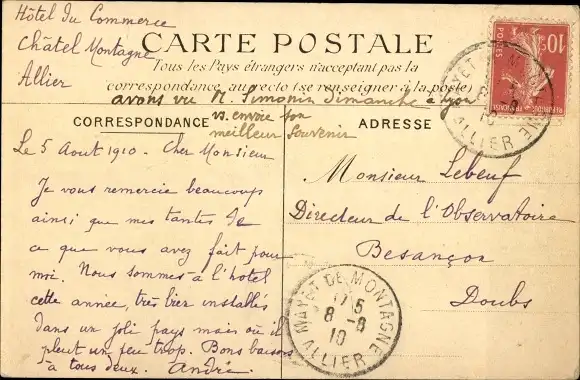 Hôtel du Commerce
Châtel Montagne
Allier
CARTE POSTALE
Tous les Pays étrangers n'acceptent pas la
correspondance au recto (se renseigner à la poste)
avons vu M. Simonin dimanche à Lyon
vs. envoie son
meilleur souvenir
CORRESPONDANCE
ADRESSE
Le 5 Aout 1910. Cher Monsieur
Je vous remercie beaucoup
ainsi que mes tantes de
ce que vous avez fait pour
moi. Nous sommes à l'hotel
cette année, très bien installés
dans un joli pays mais où il
pleut un peu trop. Bons baisers
à tous deux. André.
Monsieur Lebeuf
Directeur de l'Observatoire
Besançon
Doubs
10
POSTES
REPUBLIQUE FRANÇAISE
MAYET DE MONTAGNE
17 5
8 - 8
10
ALLIER